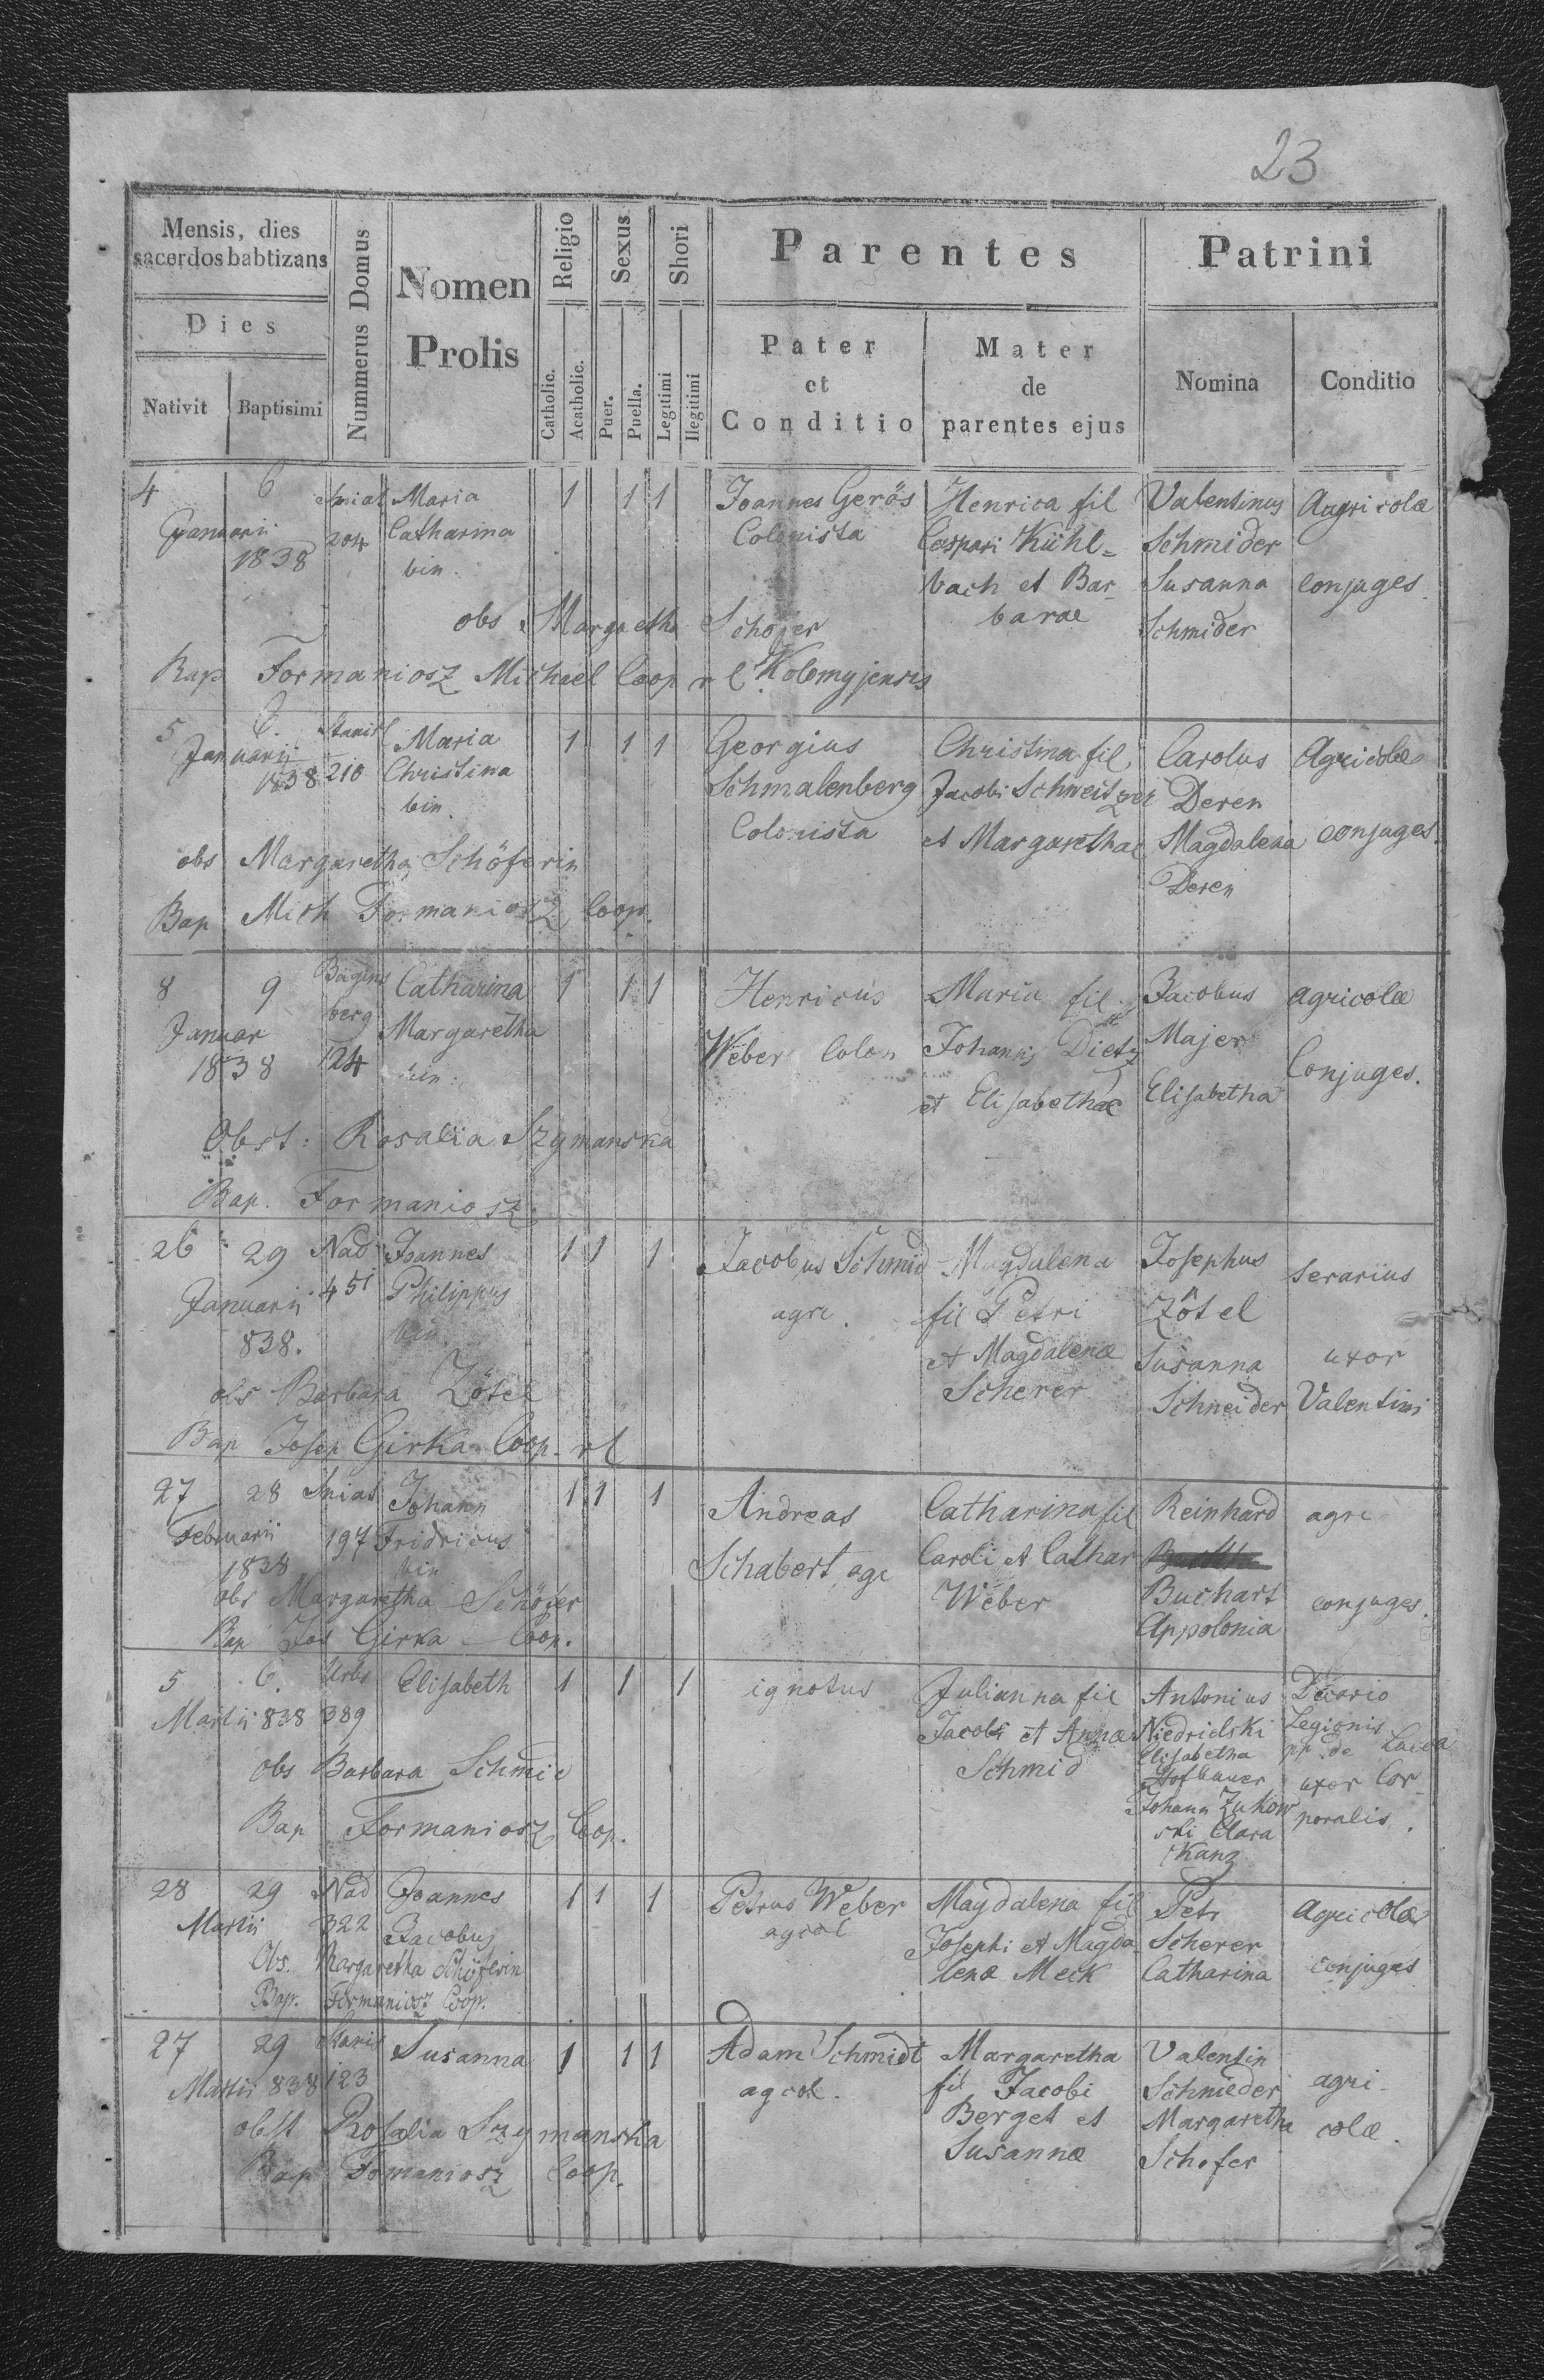 23
Mensis, dies
sacerdos babtizans
Dies
Nativit
Baptisimi
Nummerus Domus
Nomen
Prolis
Religio
Catholic.
Acatholic.
Sexus
Puer.
Puella.
Thori
Legitimi
Ilegitimi
Parentes
Pater
et
Conditio
Mater
de
parentes ejus
Patrini
Nomina
Conditio
4 6 Sniat Maria 1 1 1 Joannes Gerös Henrica fil Valentinus Agricolae
Januarii 204 Catharina Colonista Caspari Kühl= Schmider
1838 bin. bach et Bar- Susanna conjuges.
obs Margaetha Schöfer barae Schmider
Bap Formaniosz Michael Coop r l Kolomyjensis
5 6. Stanisl Maria 1 1 1 Georgius Christina fil Carolus Agricolae
Januarii 1838 210 Christina Schmalenberg Jacobi Schweitzer Deren
bin. Colonista et Margarethae Magdalena conjuges.
obs Margaretha Schöferin Deren
Bap Mich Formaniosz Coop.
8 9 Bagins Catharina 1 1 1 Henricus Maria fil. Jacobus agricolae
Januar berg Margaretha Weber Colon Johannis Dietz Majer
1838 124 bin. et Elisabethae Elisabetha Conjuges.
Obst: Rosalia Szymanska
Bap. Formaniosz
26 29 Nad Joannes 1 1 1 Jacobus Schmid Magdalena Josephus serarius
Januarii 451 Philippus agri. fil Petri Zötel
838. bin. et Magdalenae Susanna uxor
obs Barbara Zötel Scherer Schneider Valentini
Bap Josep Girka Coop. rl
27 28 Sniat Johann 1 1 1 Andreas Catharina fil Reinhard agri
Februarii 197 Fridricus Schabert agr Caroli et Cathar
1838 bin Weber Buchart conjuges.
obs Margaretha Schöfer Appolonia
Bap Jos Girka Coop.
5 6. Urbs Elisabeth 1 1 1 ignotus Julianna fil Antonius
Martii 838 389 Jacobi et Annae Niedzielski Legionis
obs Barbara Schmid Schmid Elisabetha
Hofbauer uxor Cor-
Bap Formaniosz Coop. Johann Zukow poralis.
ski Clara
Kanz
28 29 Nad Joannes 1 1 1 Petrus Weber Magdalena fil Petr Agricolae
Martii 322 Jacobus agricol Josephi et Magda- Scherer
Obs. Margaretha Schöferin lenae Meck Catharina conjuges
Bap. Formaniosz Coop.
27 29 Stanis Susanna 1 1 1 Adam Schmidt Margaretha Valentin
Martii 838 123 agcol. fil Jacobi Schnieder agri-
obst Rosalia Szymanska Berget et Margaretha colae.
Bap Fomaniosz Coop. Susannae Schofer